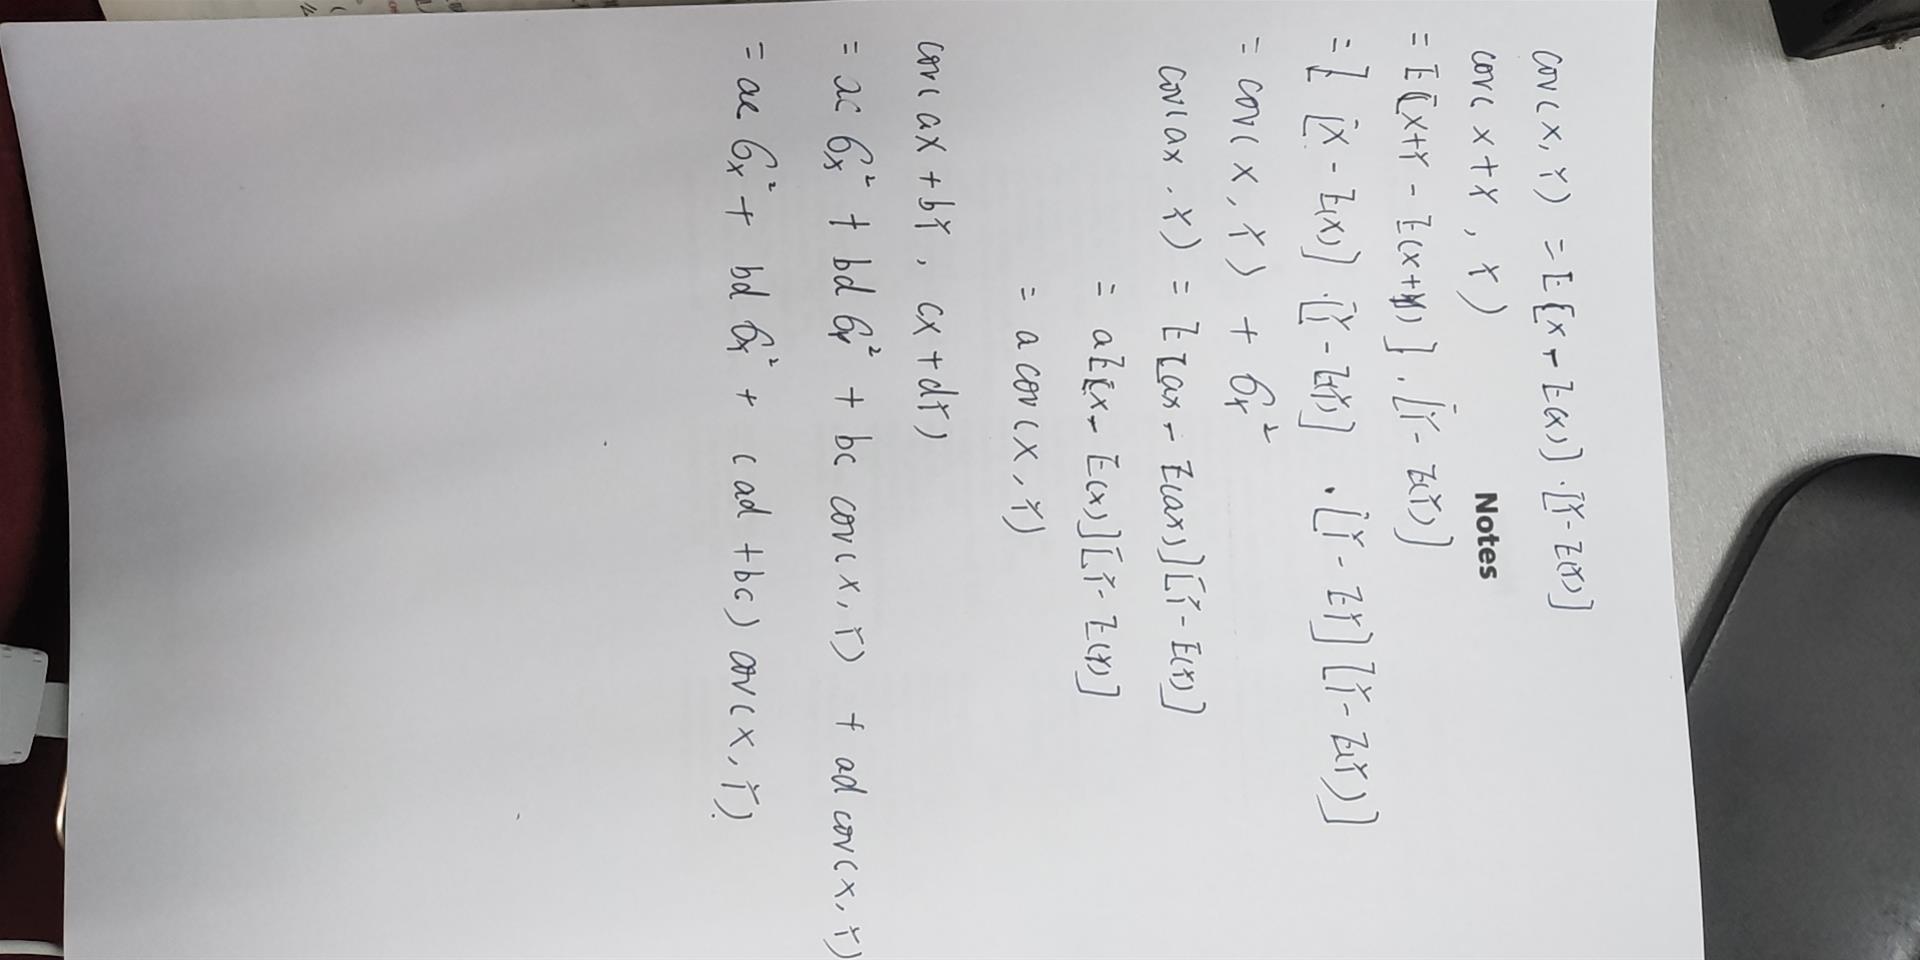 cov(x, Y) = E[x - E(x)]·[Y - E(Y)]
Notes
cov(x+Y, Y)
= E[(x+Y - E(x+Y)]·[Y - E(Y)]
= E[X - E(x)]·[Y - E(Y)] ·[Y - EY][Y - E(Y)]
= cov(x, Y) + 6Y²
cov(ax, Y) = E[ax - E(ax)][Y - E(Y)]
= aE[x - E(x)][Y - E(Y)]
= a cov(x, Y)
cov(ax + bY, cx + dY)
= ac 6x² + bd 6Y² + bc cov(x, Y) + ad cov(x, Y)
= ac 6x² + bd 6Y² + (ad + bc) cov(x, Y)